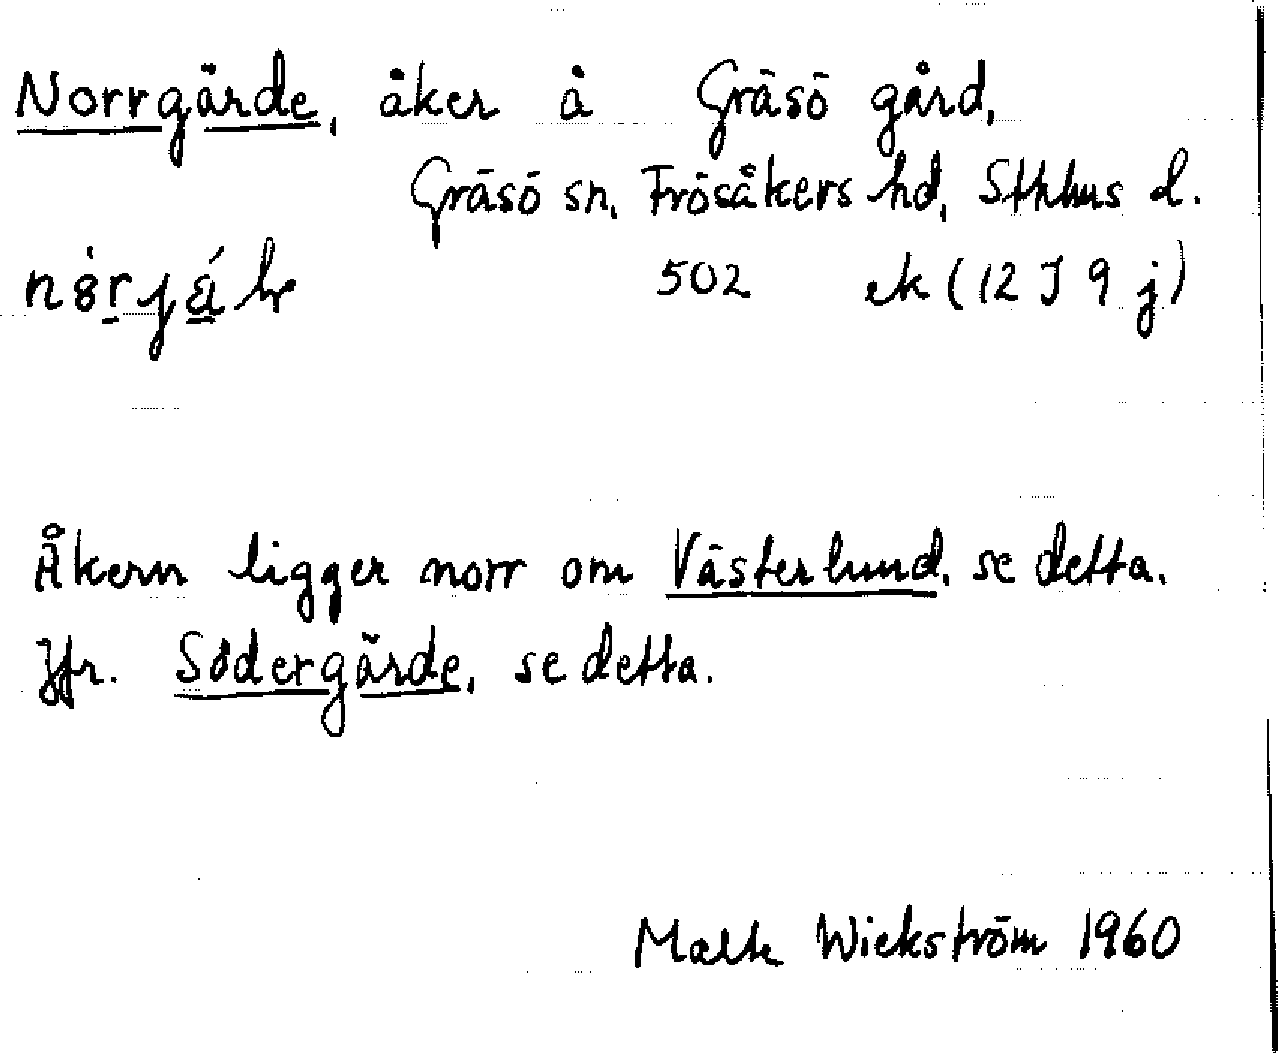 Norrgärde, åker å Gräsö gård,
Gräsö sn, Frösåkers hd, Sthlms l.
502 ek (12 J 9 j)
Åkern ligger norr om Västerlund, se detta.
Jfr. Södergärde, se detta.
Wickström 1960